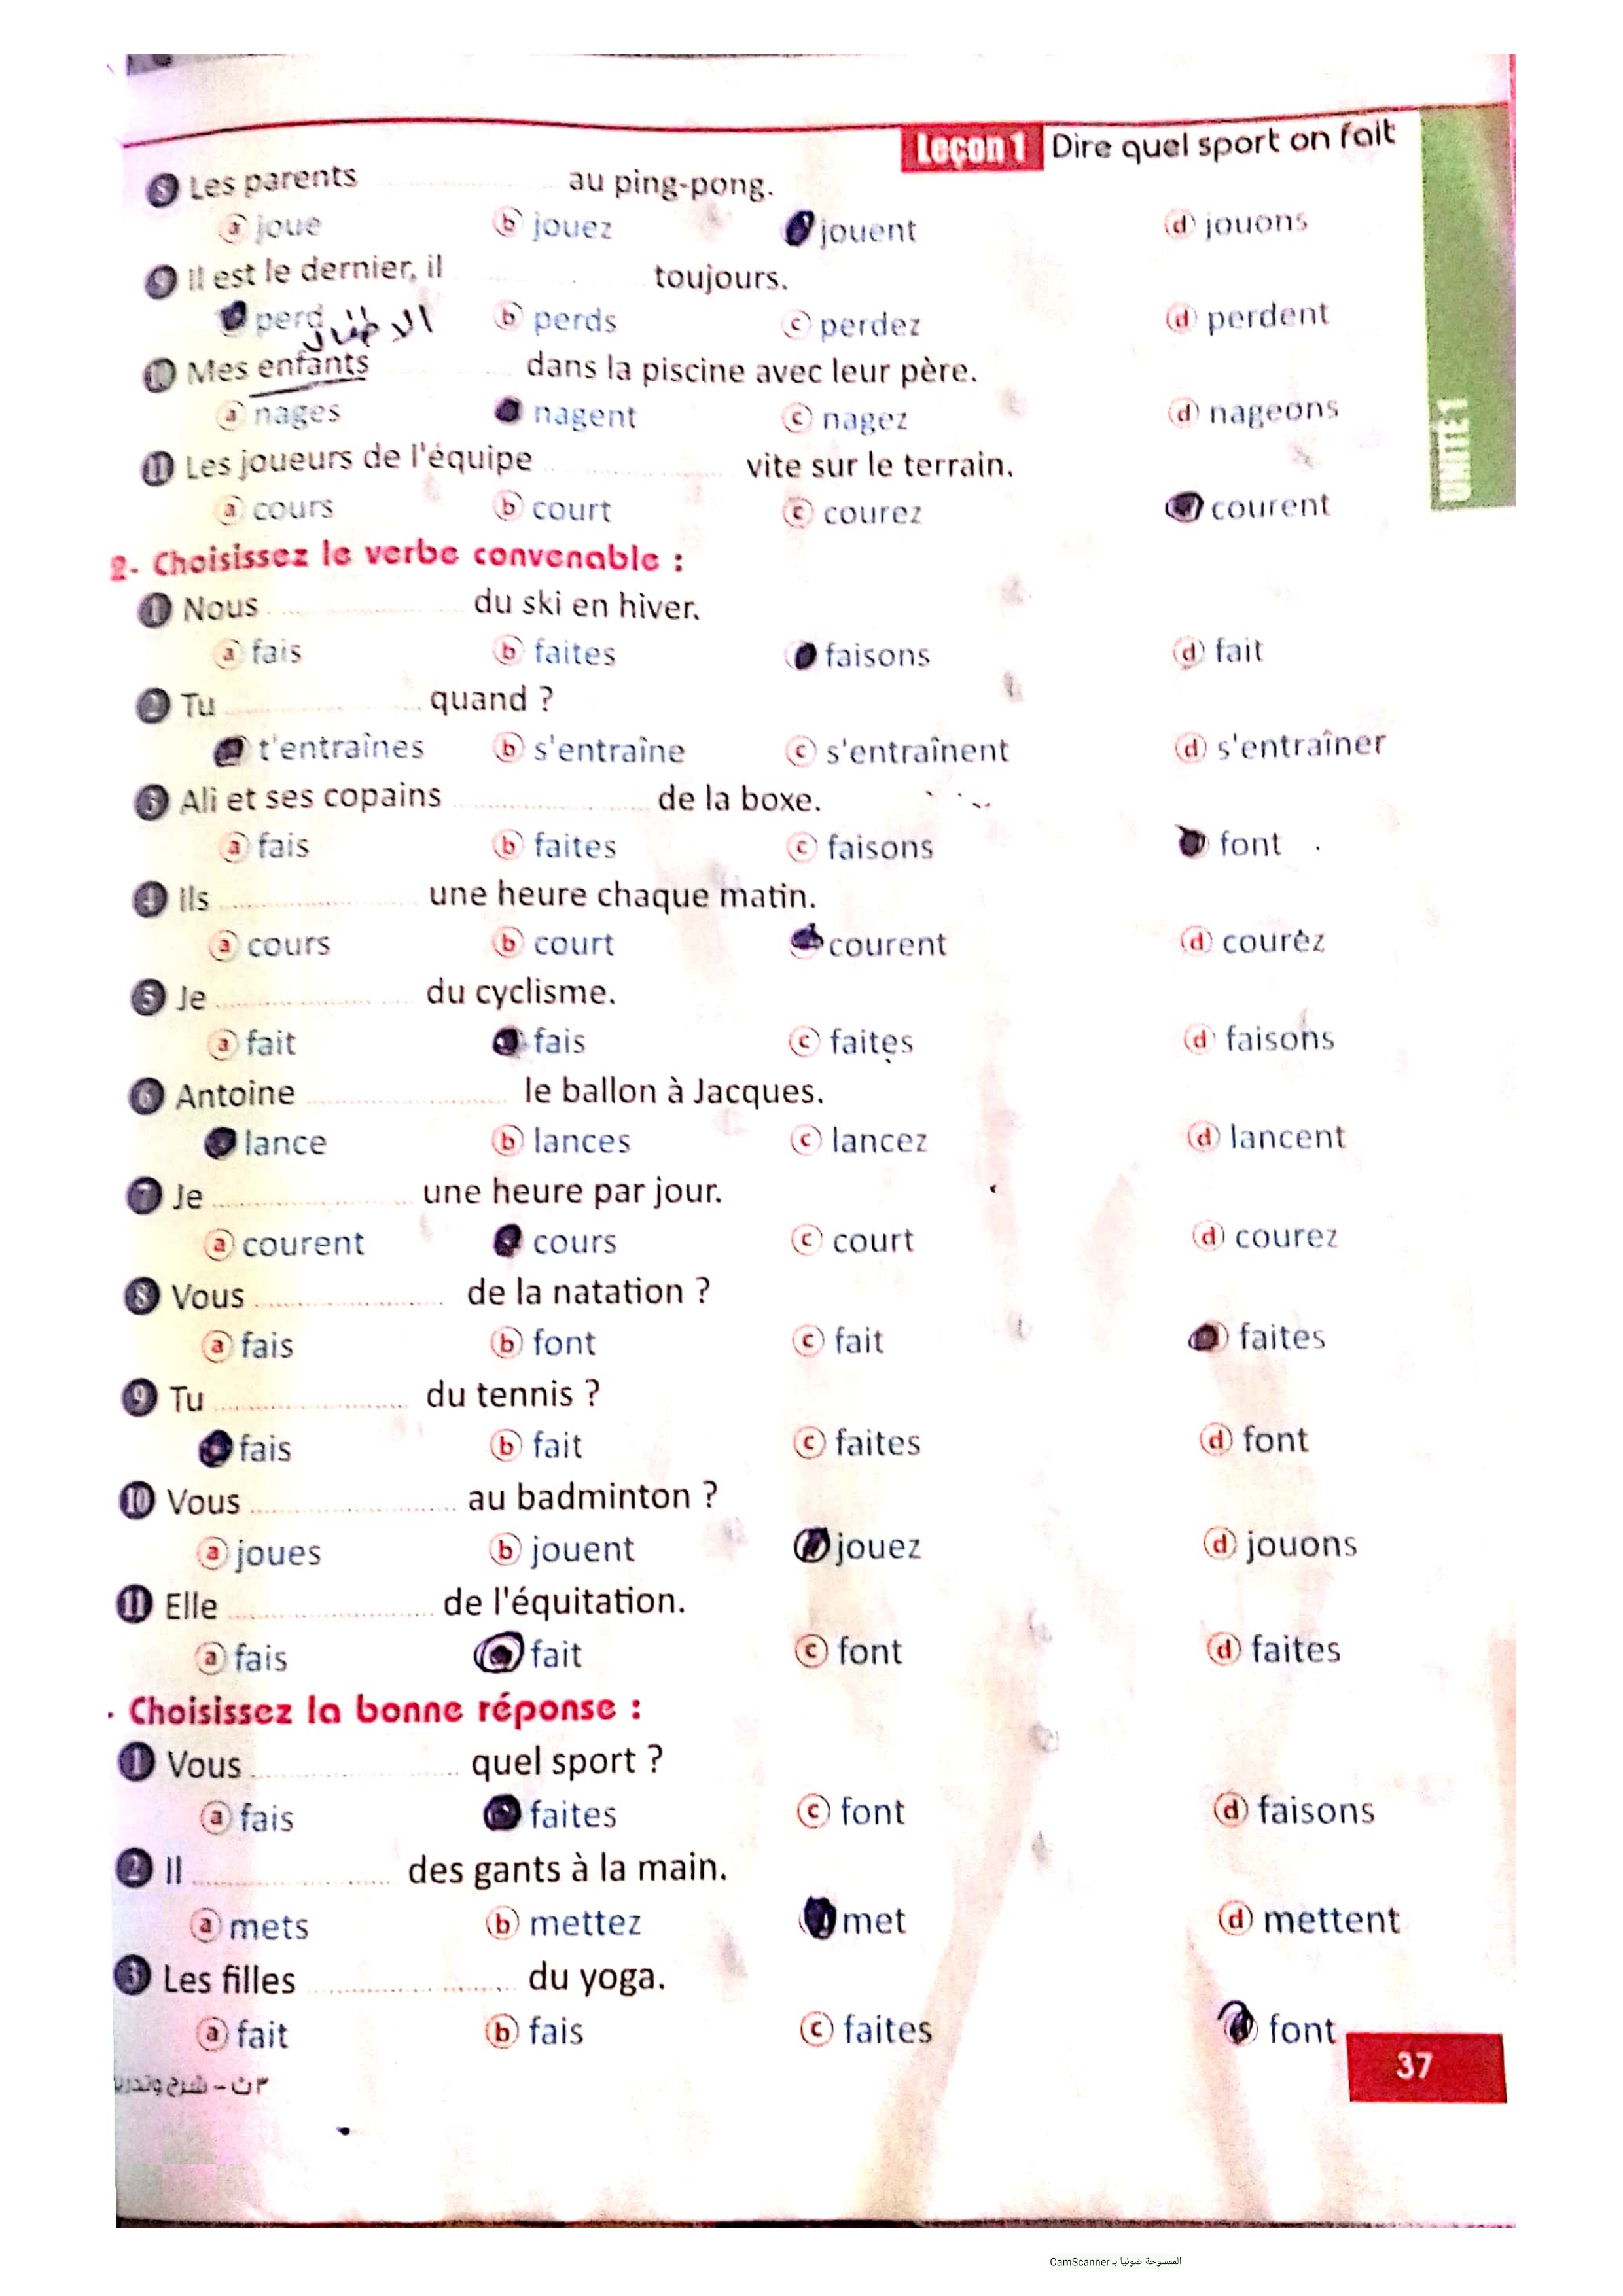 Leçon 1 Dire quel sport on fait
8 Les parents .................... au ping-pong.
a joue b jouez jouent d jouons
9 Il est le dernier, il .................... toujours.
perd b perds c perdez d perdent
10 Mes enfants .................... dans la piscine avec leur père.
a nages nagent c nagez d nageons
11 Les joueurs de l'équipe .................... vite sur le terrain.
a cours b court c courez courent
UNITÉ 1
2- Choisissez le verbe convenable :
1 Nous .................... du ski en hiver.
a fais b faites faisons d fait
2 Tu .................... quand ?
t'entraînes b s'entraîne c s'entraînent d s'entraîner
3 Ali et ses copains .................... de la boxe.
a fais b faites c faisons font
4 Ils .................... une heure chaque matin.
a cours b court courent d courez
5 Je .................... du cyclisme.
a fait fais c faites d faisons
6 Antoine .................... le ballon à Jacques.
lance b lances c lancez d lancent
7 Je .................... une heure par jour.
a courent cours c court d courez
8 Vous .................... de la natation ?
a fais b font c fait faites
9 Tu .................... du tennis ?
fais b fait c faites d font
10 Vous .................... au badminton ?
a joues b jouent jouez d jouons
11 Elle .................... de l'équitation.
a fais fait c font d faites
- Choisissez la bonne réponse :
1 Vous .................... quel sport ?
a fais faites c font d faisons
2 Il .................... des gants à la main.
a mets b mettez met d mettent
3 Les filles .................... du yoga.
a fait b fais c faites font
37
الممسوحة ضوئيا بـ CamScanner